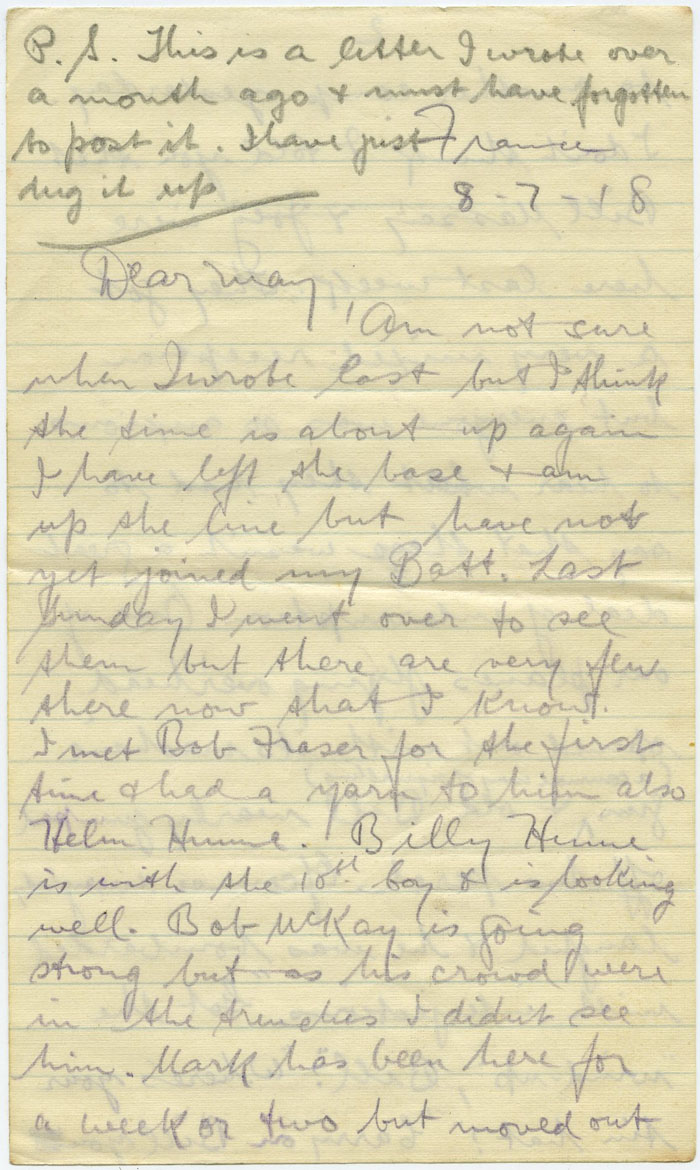 P.S. This is a letter I wrote over
a month ago & must have forgotten
to post it. I have just
dug it up
France
8-7-18
Dear May
Am not sure
when I wrote last but I think
the time is about up again
I have left the base & am
up the line but have not
yet joined my Batt. Last
Sunday I went over to see
them but there are very few
there now that I know.
I met Bob Fraser for the first
time & had a yarn to him also
Helm Hunne. Billy Hunne
is with the 10th boy & is looking
well. Bob McKay is going
strong but as his crowd were
in the trenches I didn't see
him. Mark has been here for
a week or two but moved out